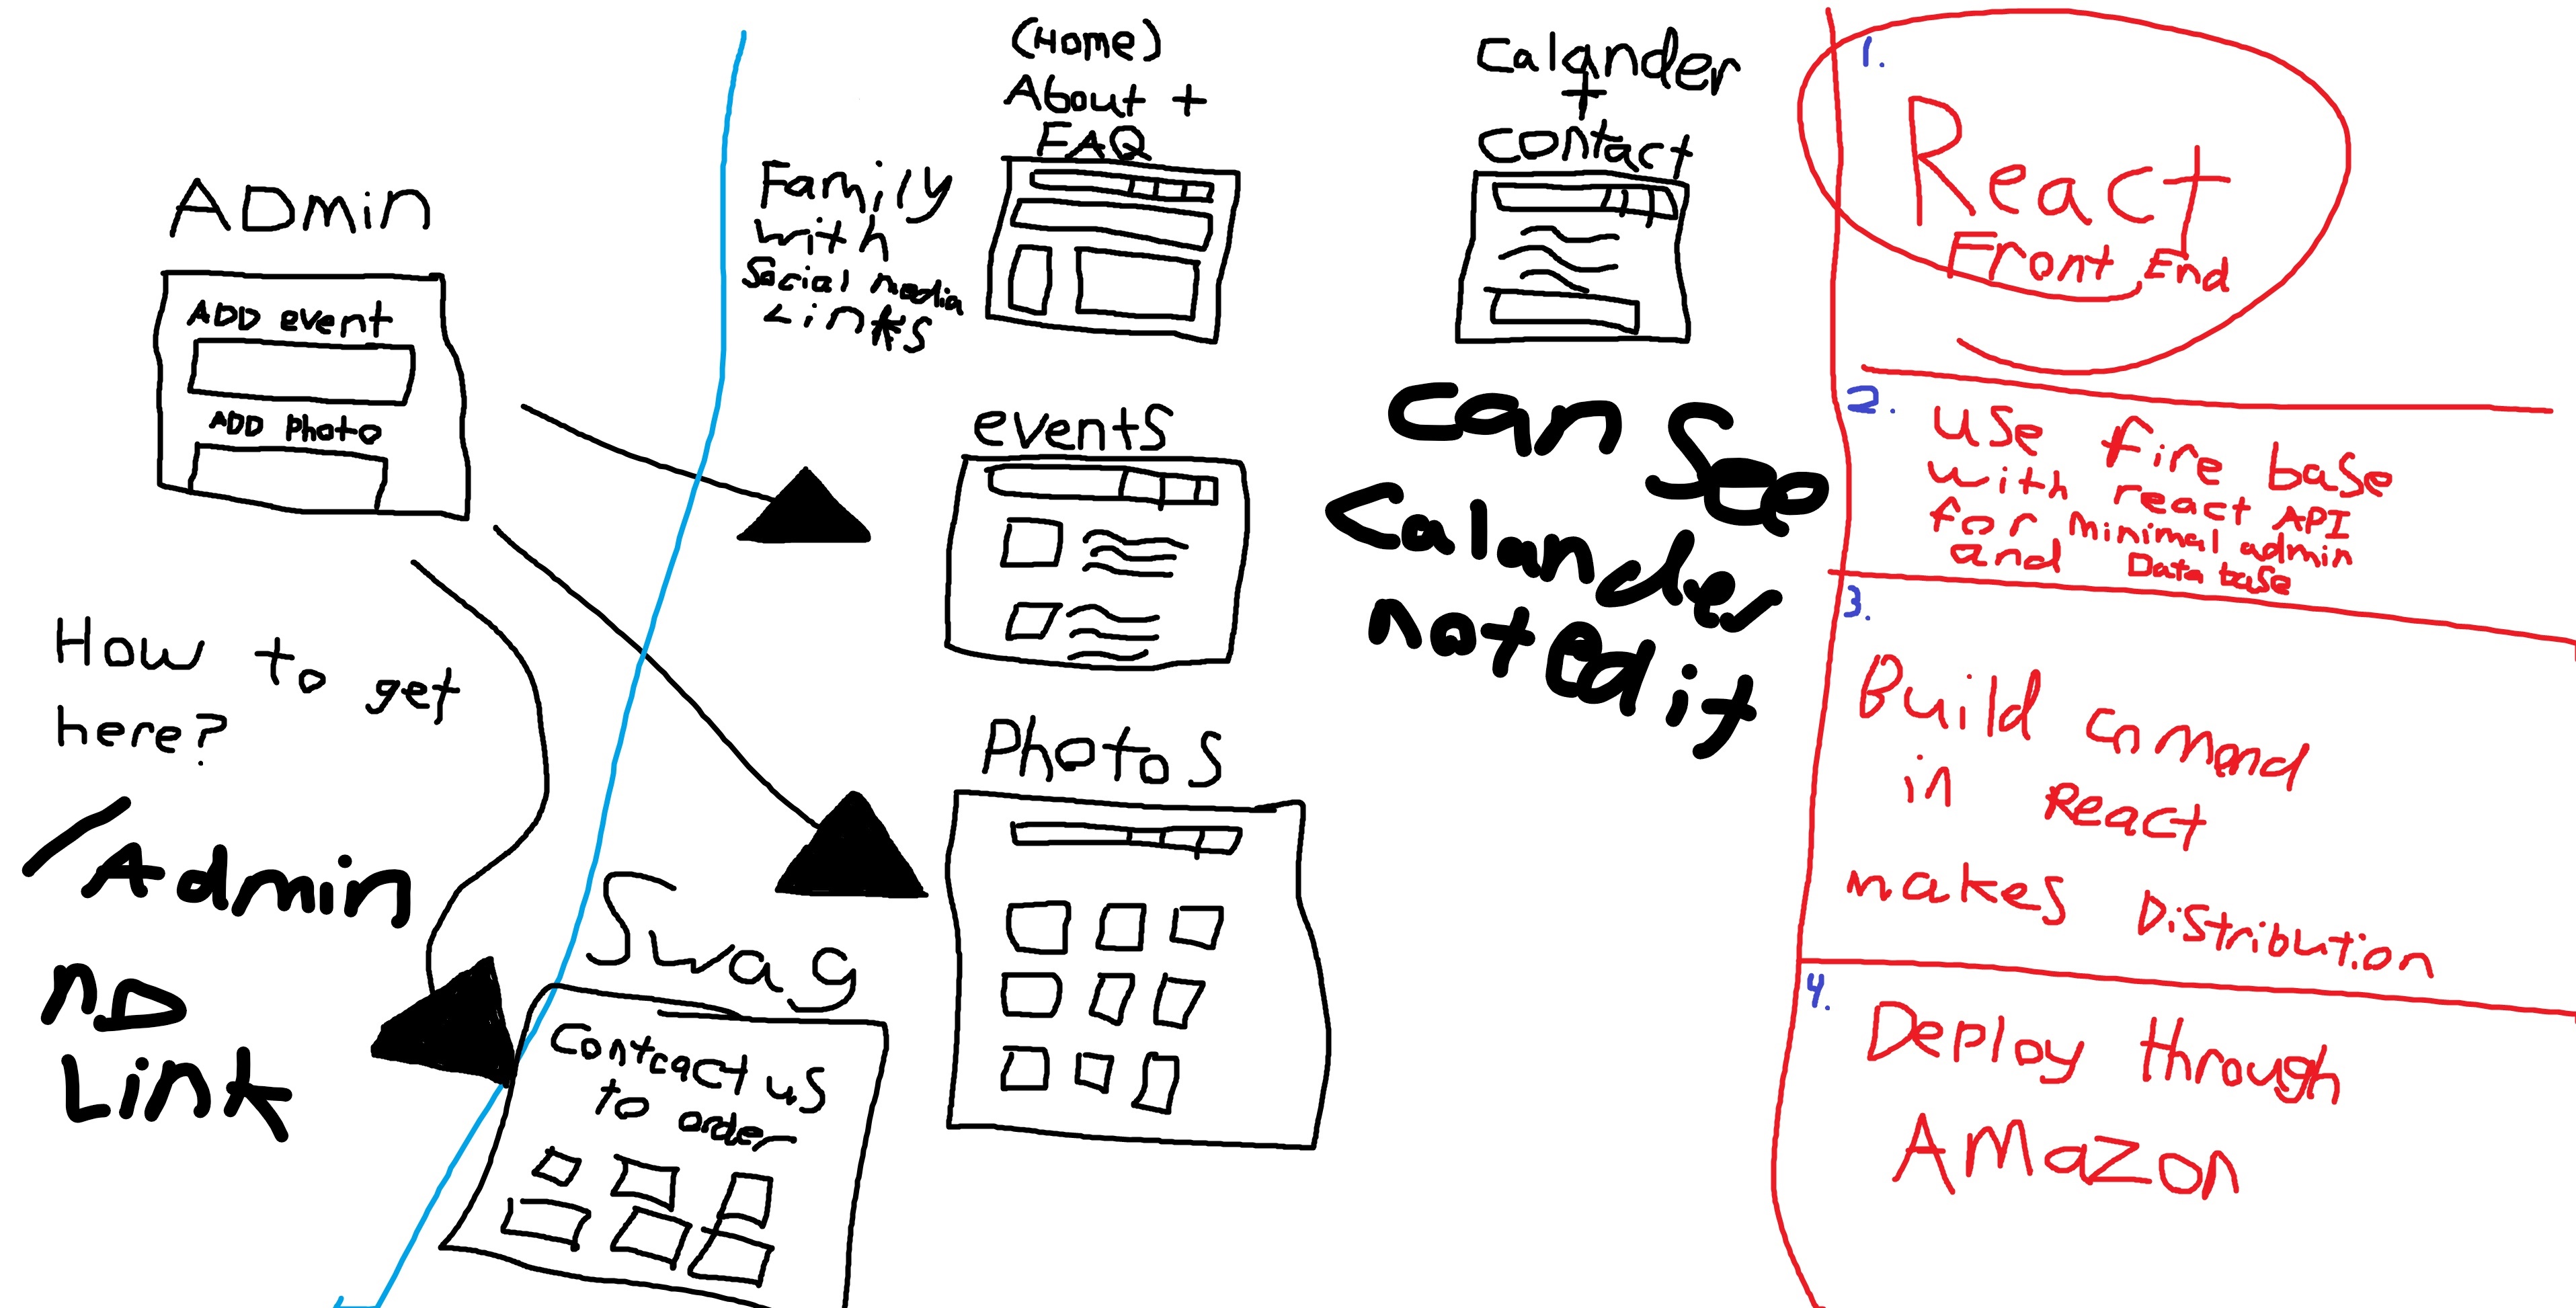 ADmin
ADD event
ADD Photo
How to get
here?
/Admin
no
Link
Family
with
Social media
Links
(Home)
About +
FAQ
events
Photos
Swag
Contcact us
to order
Calander
+
contact
can see
Calander
not edit
1.
React
Front End
2.
use fire base
with react API
for minimal admin
and Data base
3.
Build comand
in React
makes Distribution
4.
Deploy through
Amazon